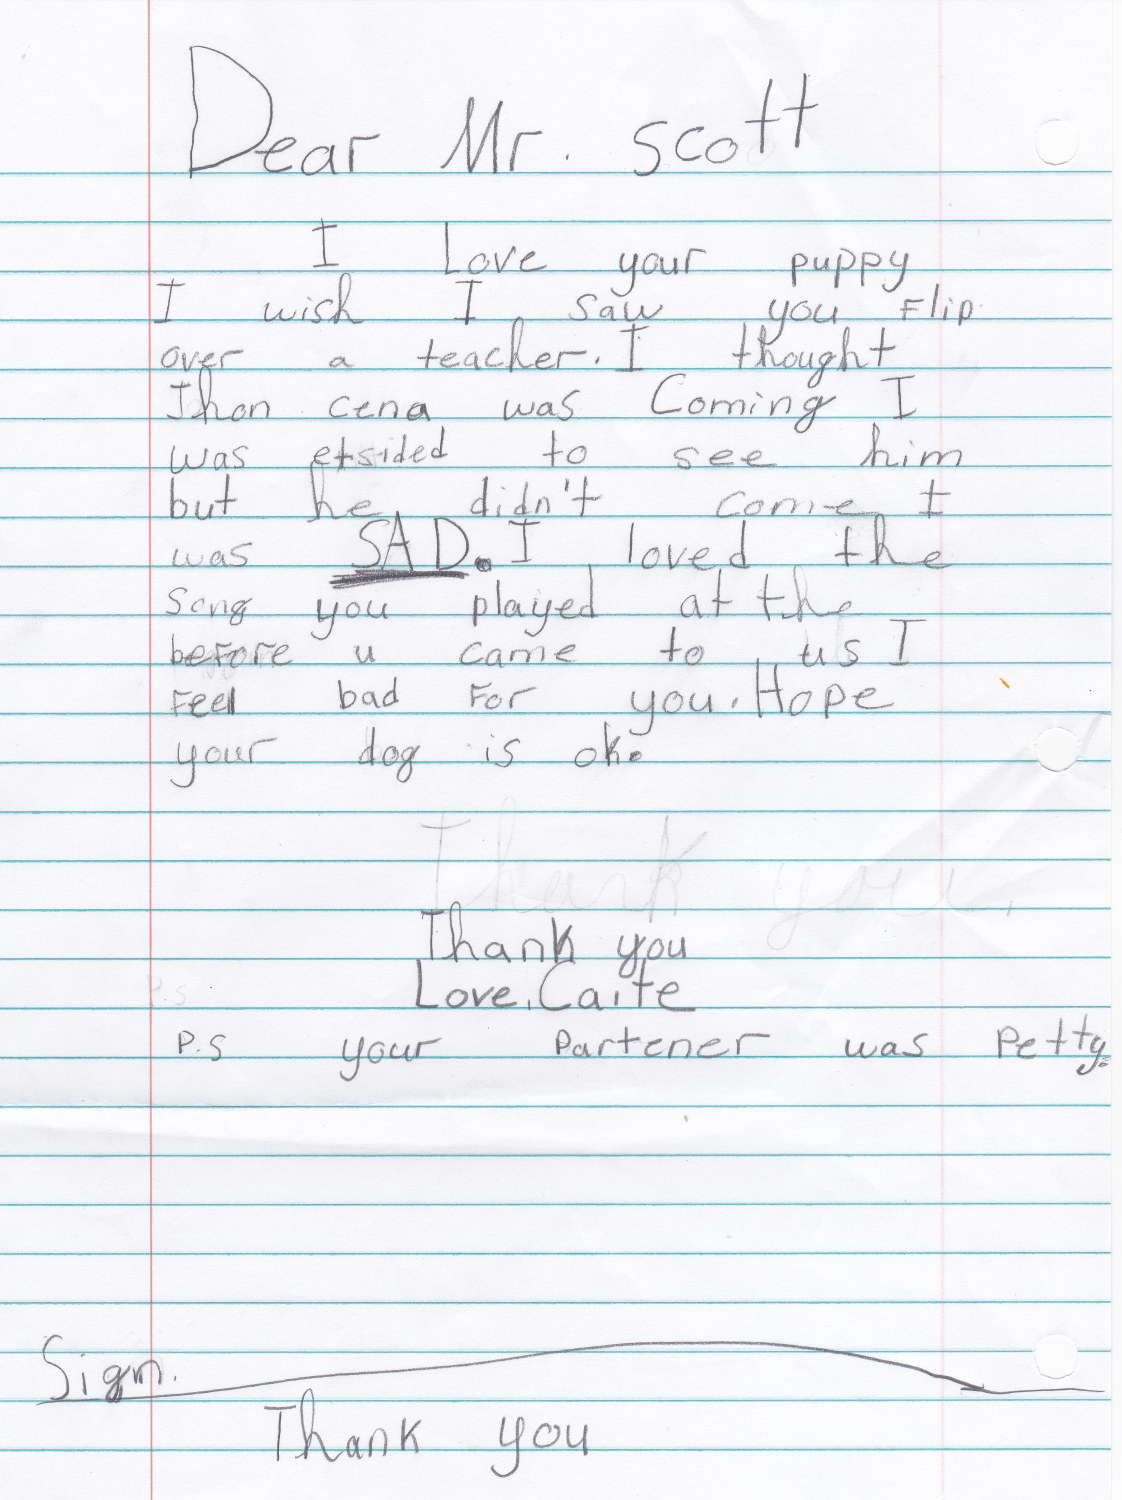 Dear Mr. scott
I Love your puppy
I wish I saw you Flip
over a teacher. I thought
Jhon cena was Coming I
was etsided to see him
but he didn't come I
was SAD. I loved the
Song you played at the
before u came to us I
Feel bad For you. Hope
your dog is ok.
Thank you.
Thank you
Love, Caite
P.S
P.S your Partener was Petty.
Sign.
Thank you